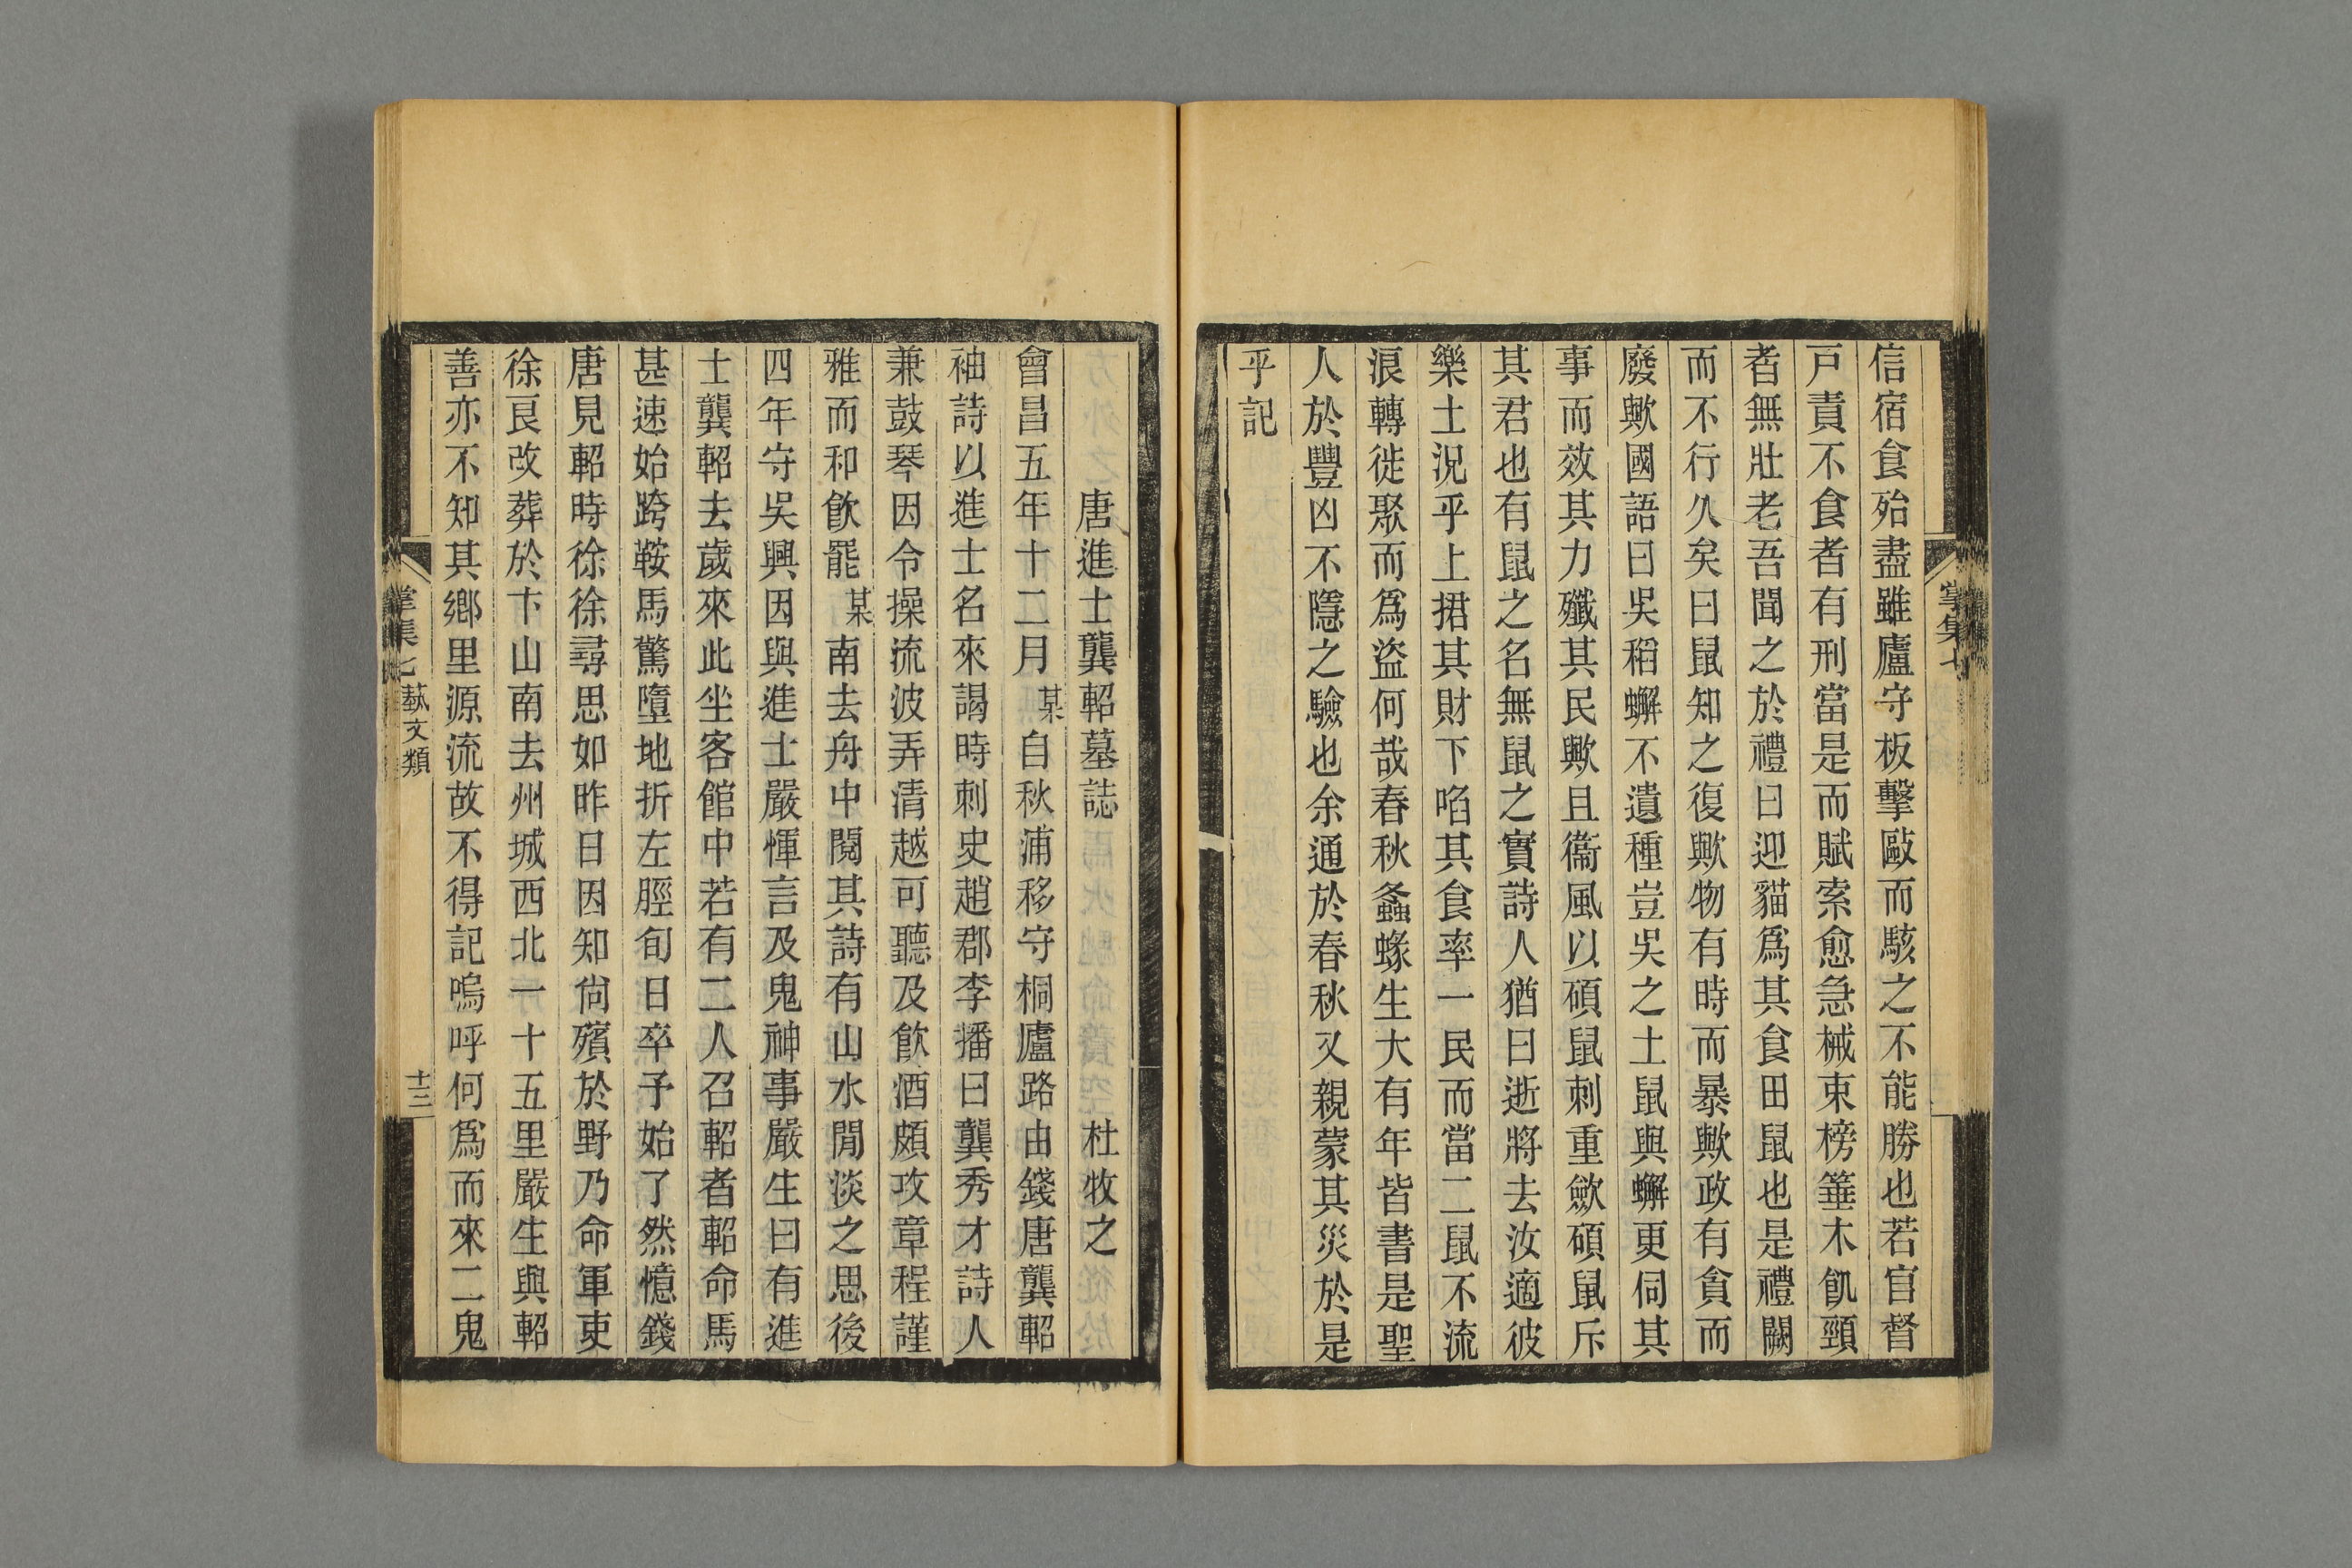 信宿食殆盡雖廬守板擊敺而駭之不能勝也若官督
戸責不食者有刑當是而賦索愈急械束榜箠木飢頸
者無壯老吾聞之於禮曰迎貓爲其食田鼠也是禮闕
而不行久矣曰鼠知之復歟物有時而暴歟政有貪而
廢歟國語曰吳稻蠏不遺種豈吳之土鼠與蠏更伺其
事而效其力殱其民歟且衞風以碩鼠刺重斂碩鼠斥
其君也有鼠之名無鼠之實詩人猶曰逝將去汝適彼
樂土況乎上捃其財下啗其食率一民而當二鼠不流
浪轉徙聚而爲盜何哉春秋螽蝝生大有年皆書是聖
人於豐凶不隱之驗也余通於春秋又親蒙其災於是
乎記
掌集七
唐進士龔軺墓誌 杜牧之
會昌五年十二月某自秋浦移守桐廬路由錢唐龔軺
袖詩以進士名來謁時刺史趙郡李播曰龔秀才詩人
兼鼓琴因令操流波弄清越可聽及飮酒頗攻章程謹
雅而和飮罷某南去舟中閱其詩有山水閒淡之思後
四年守吳興因與進士嚴惲言及鬼神事嚴生曰有進
士龔軺去歲來此坐客館中若有二人召軺者軺命馬
甚速始跨鞍馬驚墮地折左脛旬日卒予始了然憶錢
唐見軺時徐徐尋思如昨日因知尙殯於野乃命軍吏
徐良改葬於卞山南去州城西北一十五里嚴生與軺
善亦不知其鄉里源流故不得記嗚呼何爲而來二鬼
掌集七 藝文類 十三